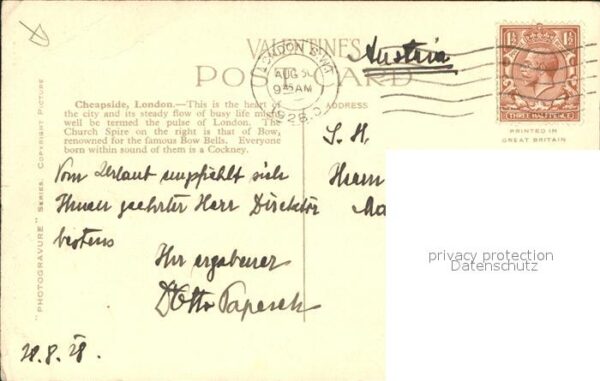 VALENTINE'S
POST CARD
LONDON S.W.1
AUG
9 45 AM
1928
Austria
THREE HALFPENCE
1½ 1½
PRINTED IN
GREAT BRITAIN
ADDRESS
Cheapside, London.—This is the heart of
the city and its steady flow of busy life might
well be termed the pulse of London. The
Church Spire on the right is that of Bow,
renowned for the famous Bow Bells. Everyone
born within sound of them is a Cockney.
"PHOTOGRAVURE" SERIES. COPYRIGHT PICTURE
Vom Urlaub empfiehlt sich
Ihnen geehrter Herr Direktor
bestens
Ihr ergebener
Dr Otto Papesch
28.8.28.
S. H.
Herrn
privacy protection
Datenschutz